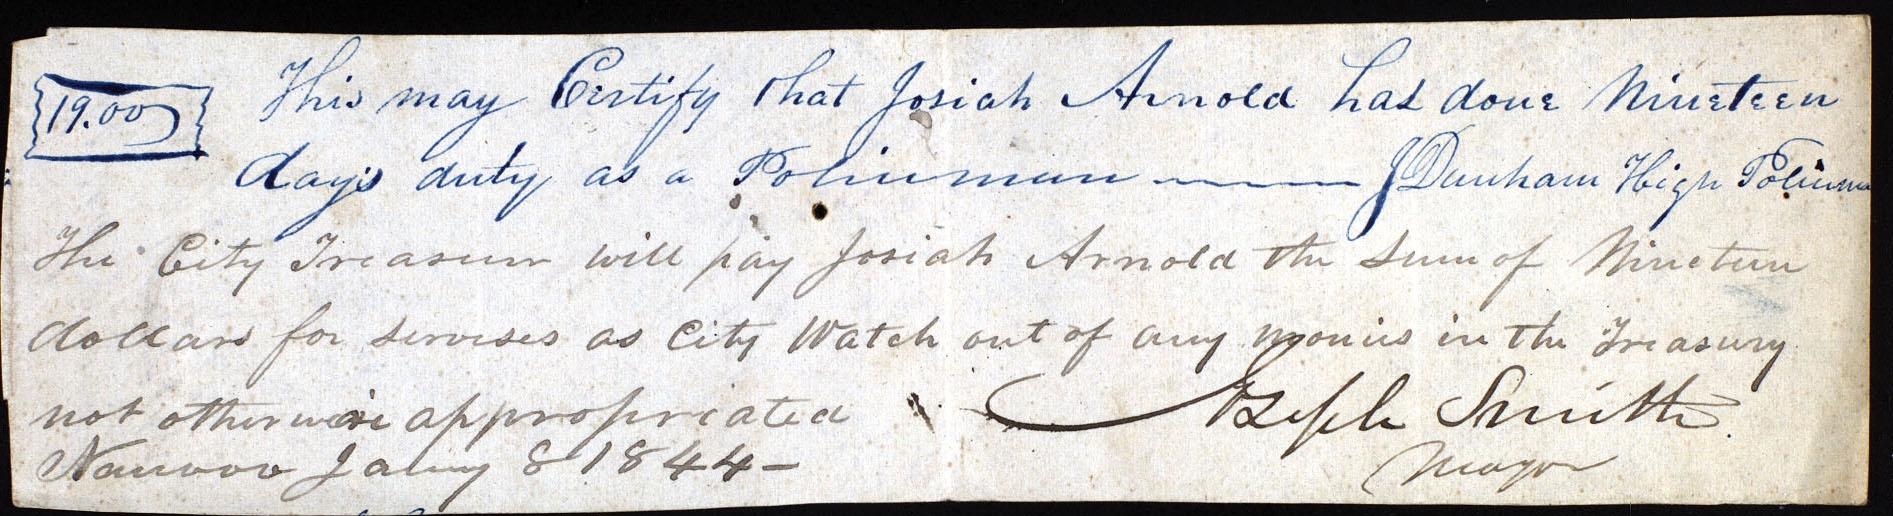 19.00
This may Certify that Josiah Arnold has done Nineteen
days duty as a Policeman — J Dunham High Policeman
The City Treasurer will pay Josiah Arnold the sum of Nineteen
dollars for servises as City Watch out of any monies in the Treasury
not otherwise appropriated Joseph Smith
Nauvoo Jany 8 1844 – Mayor